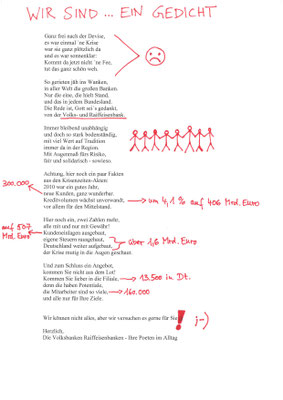 WIR SIND ... EIN GEDICHT
Ganz frei nach der Devise,
es war einmal 'ne Krise
war sie ganz plötzlich da
und es war sonnenklar:
Kommt da jetzt nicht 'ne Fee,
ist das ganz schön weh.
So gerieten jäh ins Wanken,
in aller Welt die großen Banken.
Nur die eine, die hielt Stand,
und das in jedem Bundesland.
Die Rede ist, Gott sei's gedankt,
von der Volks- und Raiffeisenbank.
Immer bleibend unabhängig
und doch so stark bodenständig,
mit viel Wert auf Tradition
immer da in der Region.
Mit Augenmaß fürs Risiko,
fair und solidarisch - sowieso.
Achtung, hier noch ein paar Fakten
aus den Kennzahlen-Akten:
2010 war ein gutes Jahr,
300.000
neue Kunden, ganz wunderbar.
Kreditvolumen wächst unverwandt,
um 4,1 % auf 406 Mrd. Euro
vor allem für den Mittelstand.
Hier noch ein, zwei Zahlen mehr,
alle mit und nur mit Gewähr!
auf 507 Mrd. Euro
Kundeneinlagen ausgebaut,
eigene Steuern ausgebaut,
über 1,6 Mrd. Euro
Deutschland weiter aufgebaut,
der Krise mutig in die Augen geschaut.
Und zum Schluss ein Angebot,
kommen Sie nicht aus dem Lot!
Kommen Sie lieber in die Filiale,
13.500 in Dt.
denn die haben Potentiale,
die Mitarbeiter sind so viele,
160.000
und alle nur für Ihre Ziele.
Wir können nicht alles, aber wir versuchen es gerne für Sie!
;-)
Herzlich,
Die Volksbanken Raiffeisenbanken - Ihre Poeten im Alltag